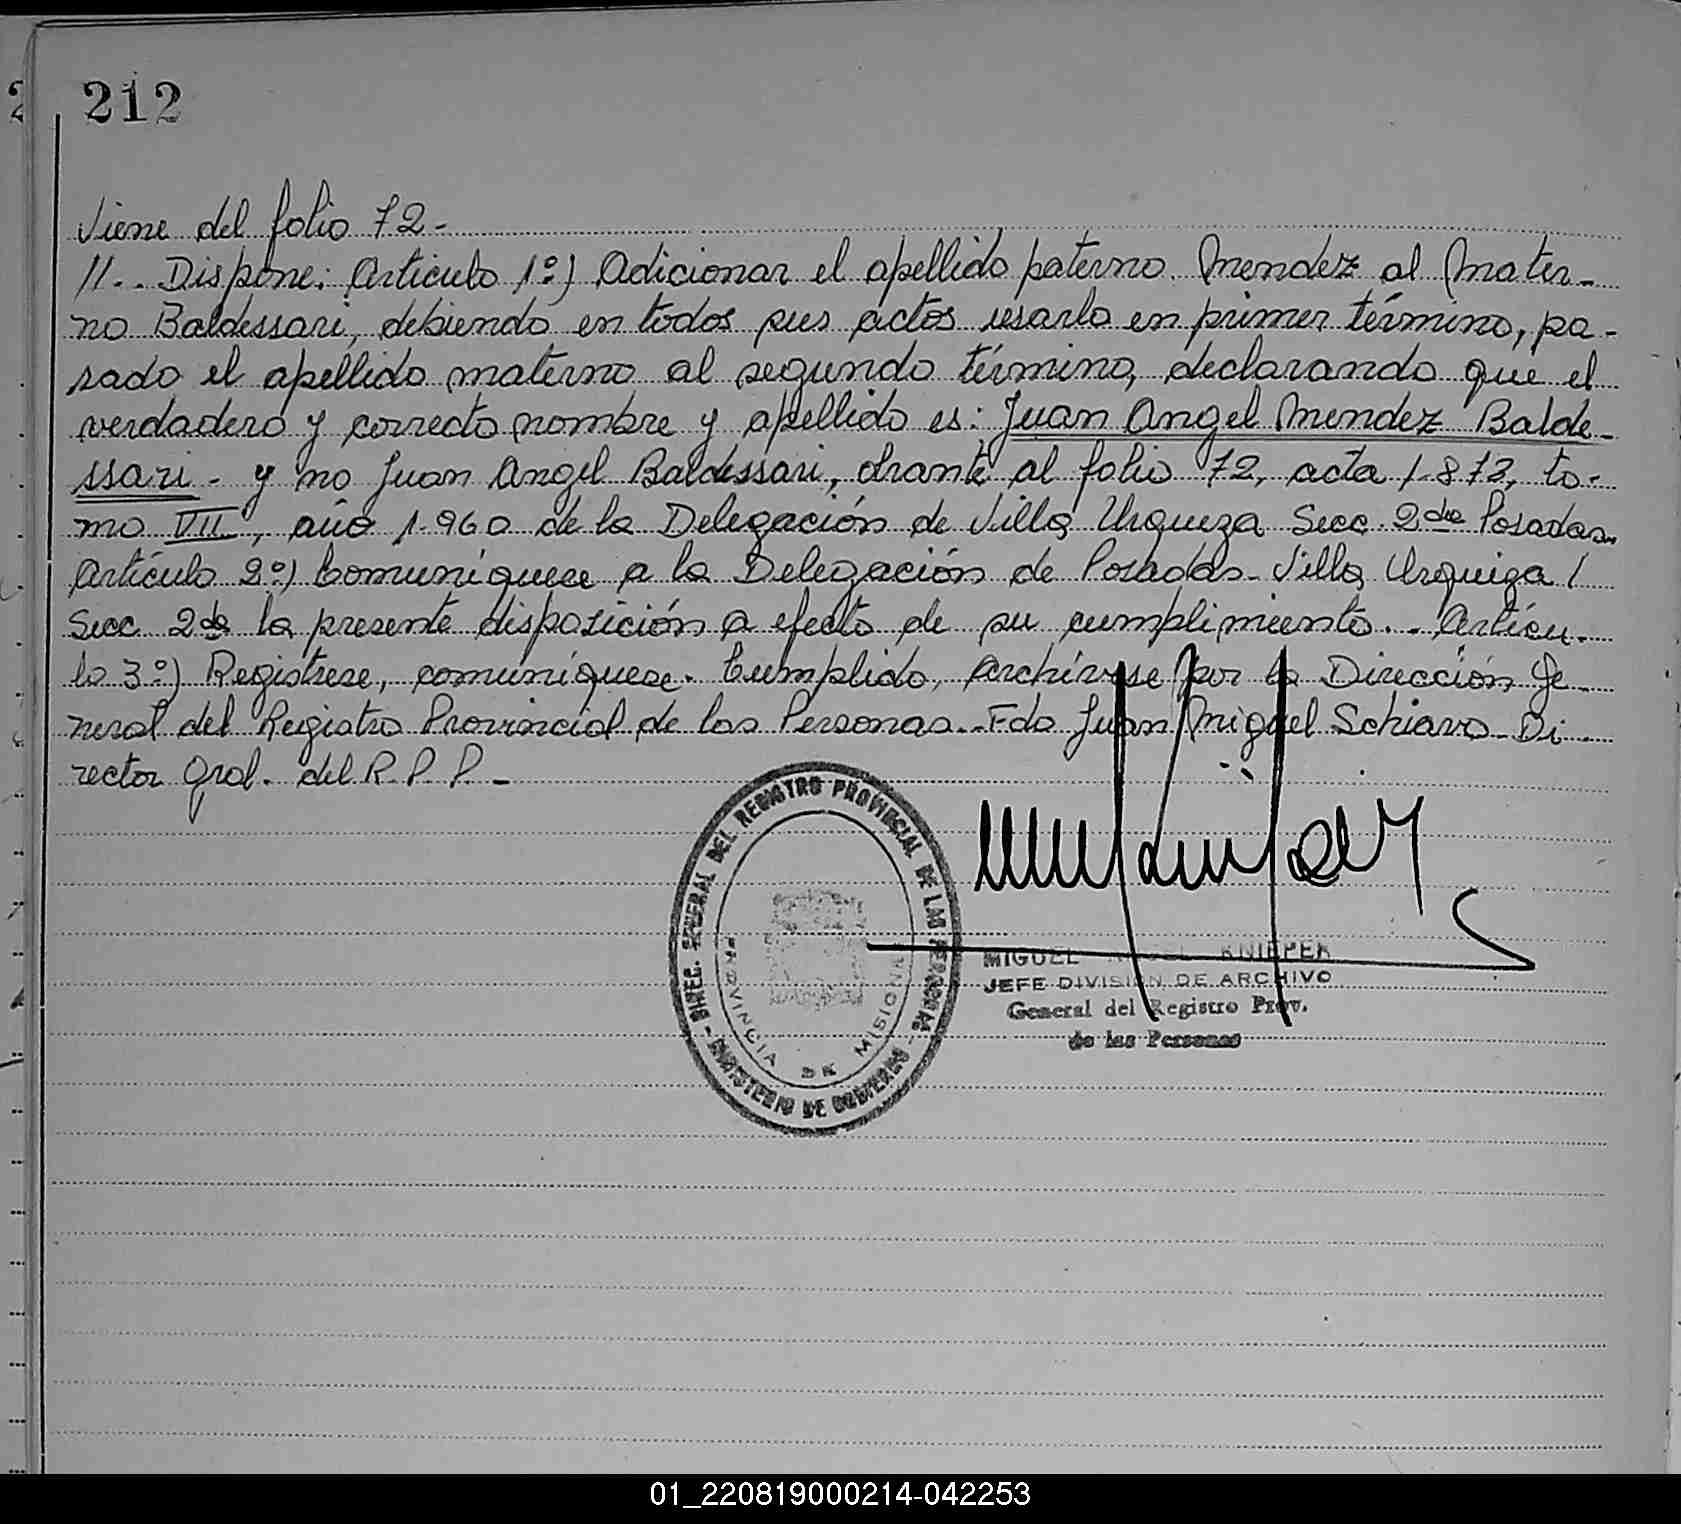 212
Viene del folio 72-
//.. Dispone: Articulo 1º) Adicionar el apellido paterno Mendez al mater-
no Baldessari, debiendo en todos sus actos usarlo en primer término, pa-
sado el apellido materno al segundo término, declarando que el
verdadero y correcto nombre y apellido es: Juan Angel Mendez Balde-
ssari - y no Juan Angel Baldessari, obrante al folio 72, acta 1.873, to-
mo VII, año 1.960 de la Delegación de Villa Urqueza Secc 2da Posadas.
Artículo 2º) Comuníquese a la Delegación de Posadas - Villa Urquiza /
Secc 2da la presente disposición a efecto de su cumplimiento.. Artícu-
lo 3º) Registrese, comuníquese. Cumplido, Archívese por la Dirección Ge-
neral del Registro Provincial de las Personas.. Fdo Juan Miguel Schiavo - Di-
rector Gral. del R.P.P. -
DIREC. GENERAL DEL REGISTRO PROVINCIAL DE LAS PERSONAS - MINISTERIO DE GOBIERNO -
PROVINCIA DE MISIONES
MIGUEL ANGEL KNIEPER
JEFE DIVISION DE ARCHIVO
General del Registro Prov.
de las Personas
01_220819000214-042253